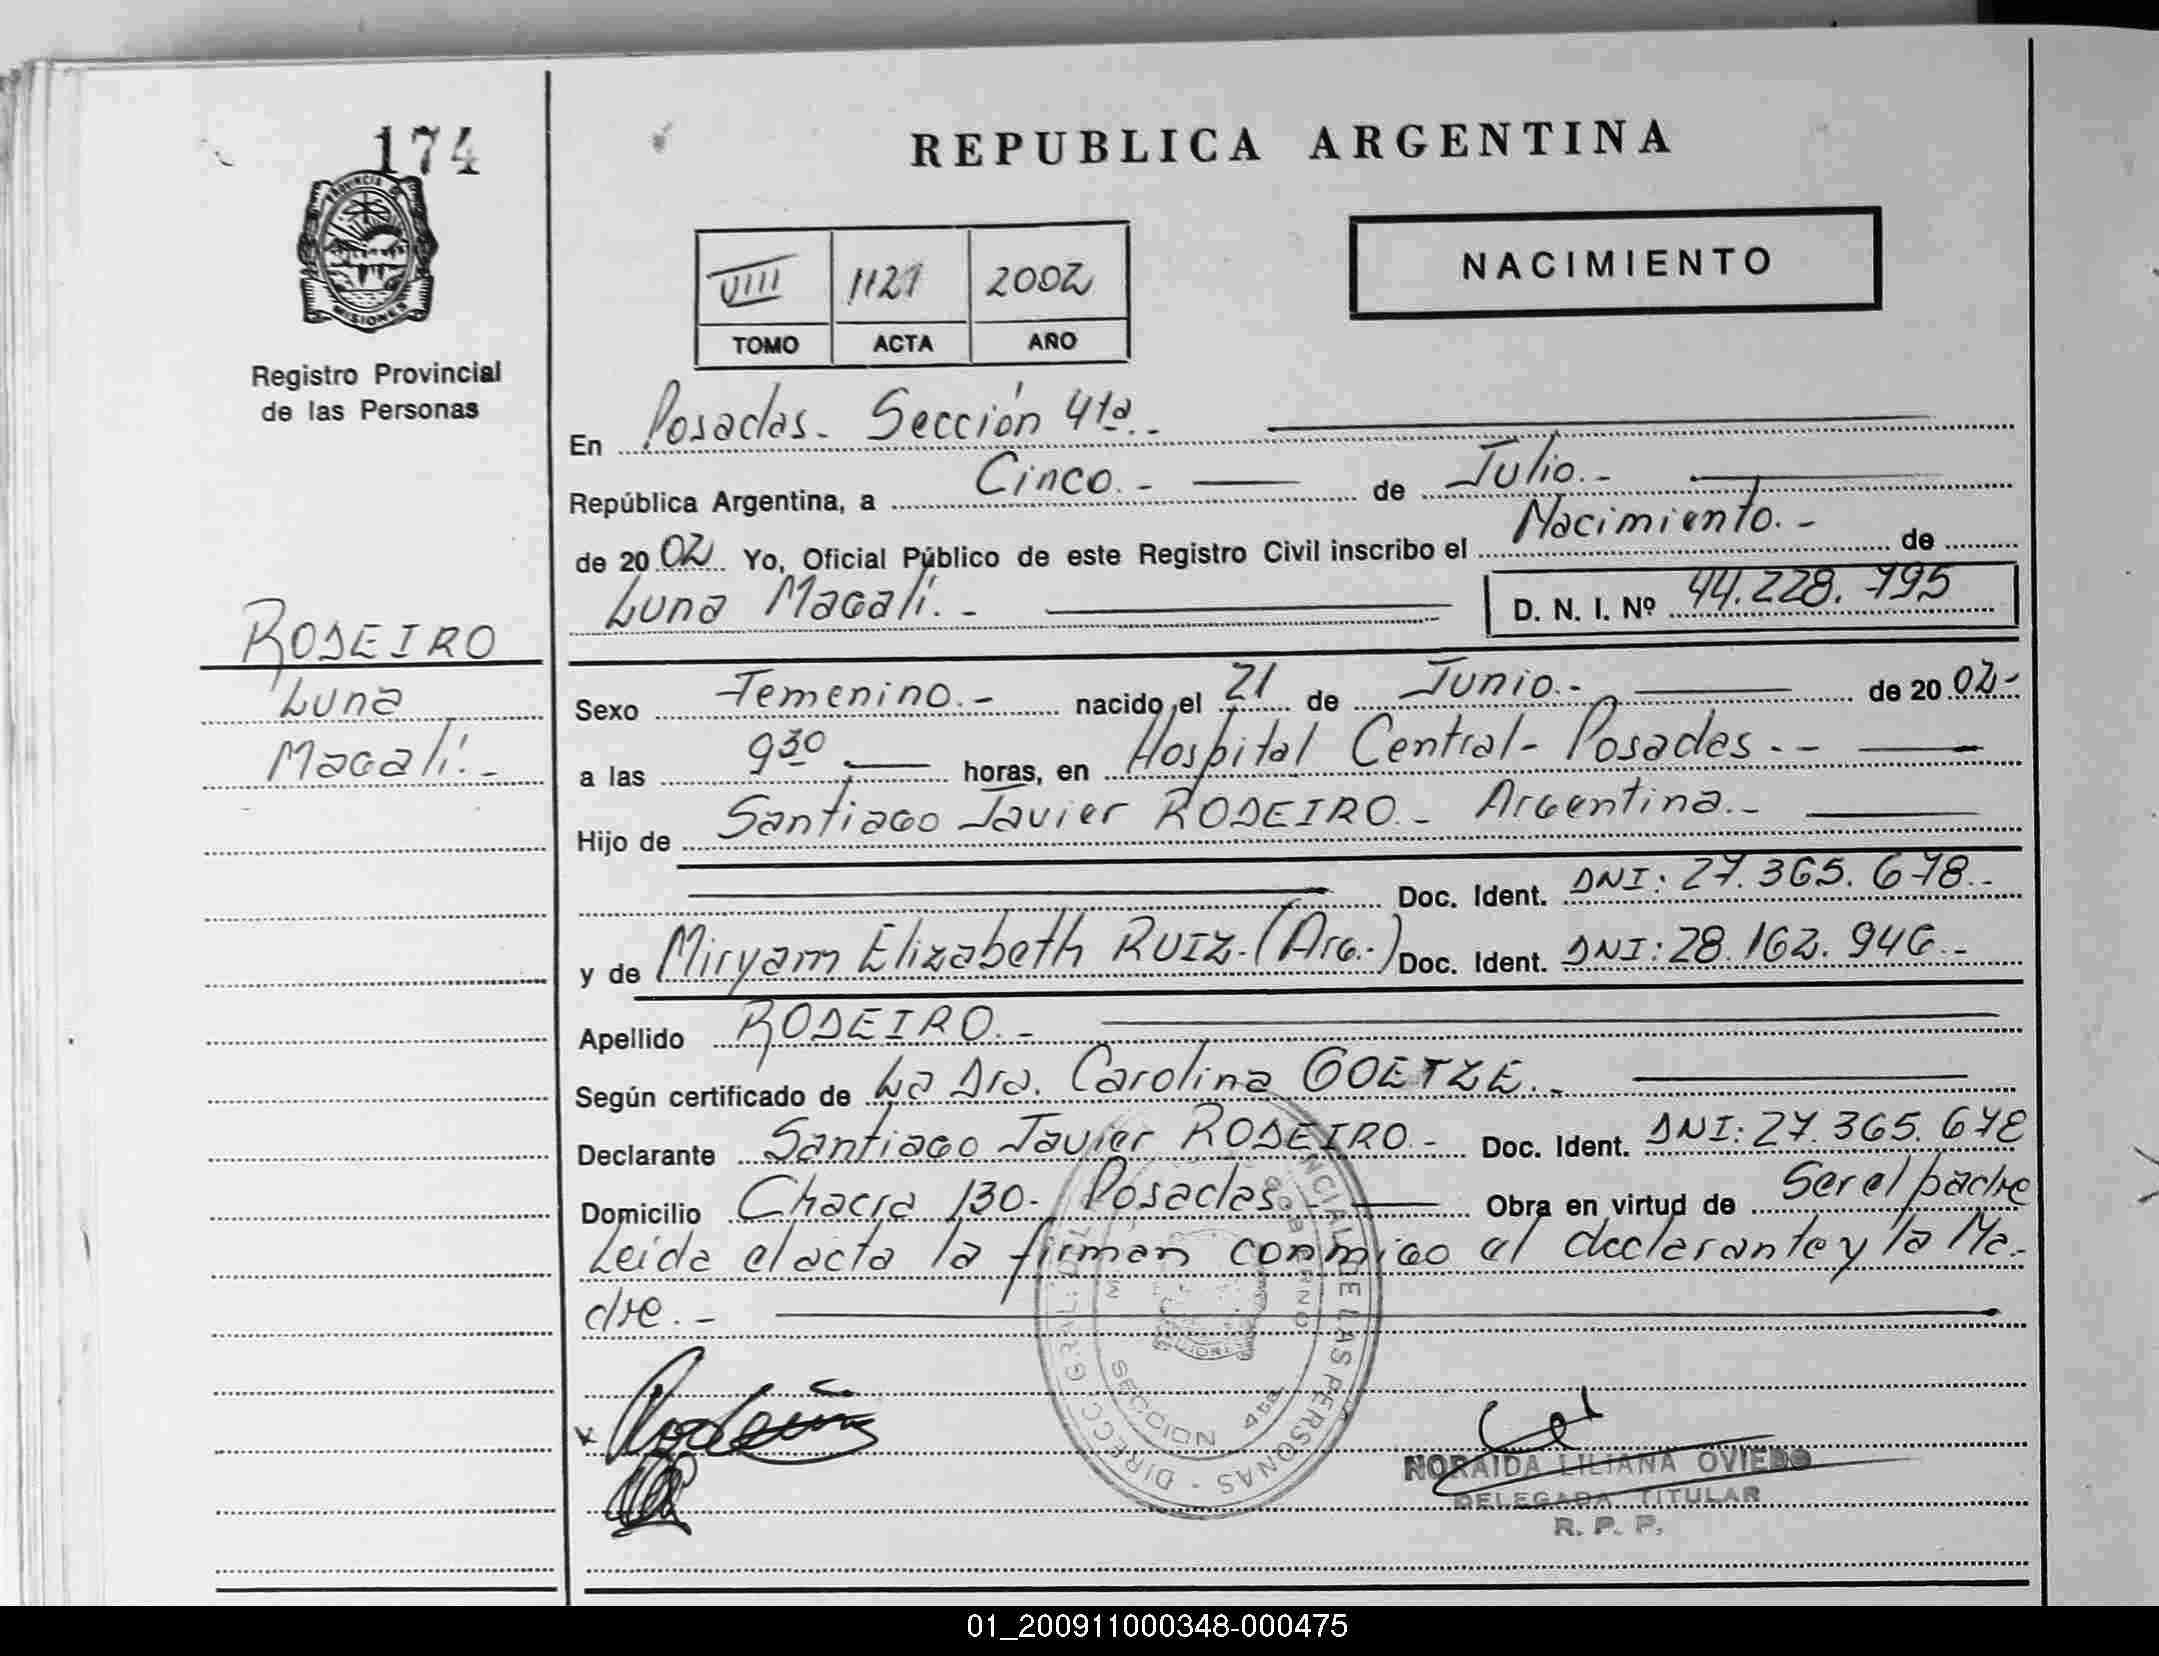 174
PROVINCIA DE
MISIONES
Registro Provincial
de las Personas
RODEIRO
Luna
Magalí.-
REPUBLICA ARGENTINA
NACIMIENTO
VIII 1121 2002
TOMO ACTA AÑO
En Posadas- Sección 4ta.-
República Argentina, a Cinco.- de Julio.-
de 2002 Yo, Oficial Público de este Registro Civil inscribo el Nacimiento.- de
Luna Magalí.- D. N. I. Nº 44.228.795
Sexo Femenino.- nacido el 21 de Junio.- de 2002-
a las 9 30 horas, en Hospital Central- Posadas.--
Hijo de Santiago Javier RODEIRO.- Argentina.-
Doc. Ident. DNI: 27.365.678.-
y de Miryam Elizabeth RUIZ.(Arg.-) Doc. Ident. DNI: 28.162.946.-
Apellido RODEIRO.-
Según certificado de La Dra. Carolina GOETZE.-
Declarante Santiago Javier RODEIRO.- Doc. Ident. DNI: 27.365.678
Domicilio Chacra 130- Posadas- Obra en virtud de Ser el padre
Leída el acta la firman conmigo el declarante y la Ma-
dre.-
SECCION 4ta
NORAIDA LILIANA OVIEDO
DELEGADA TITULAR
R. P. P.
01_200911000348-000475